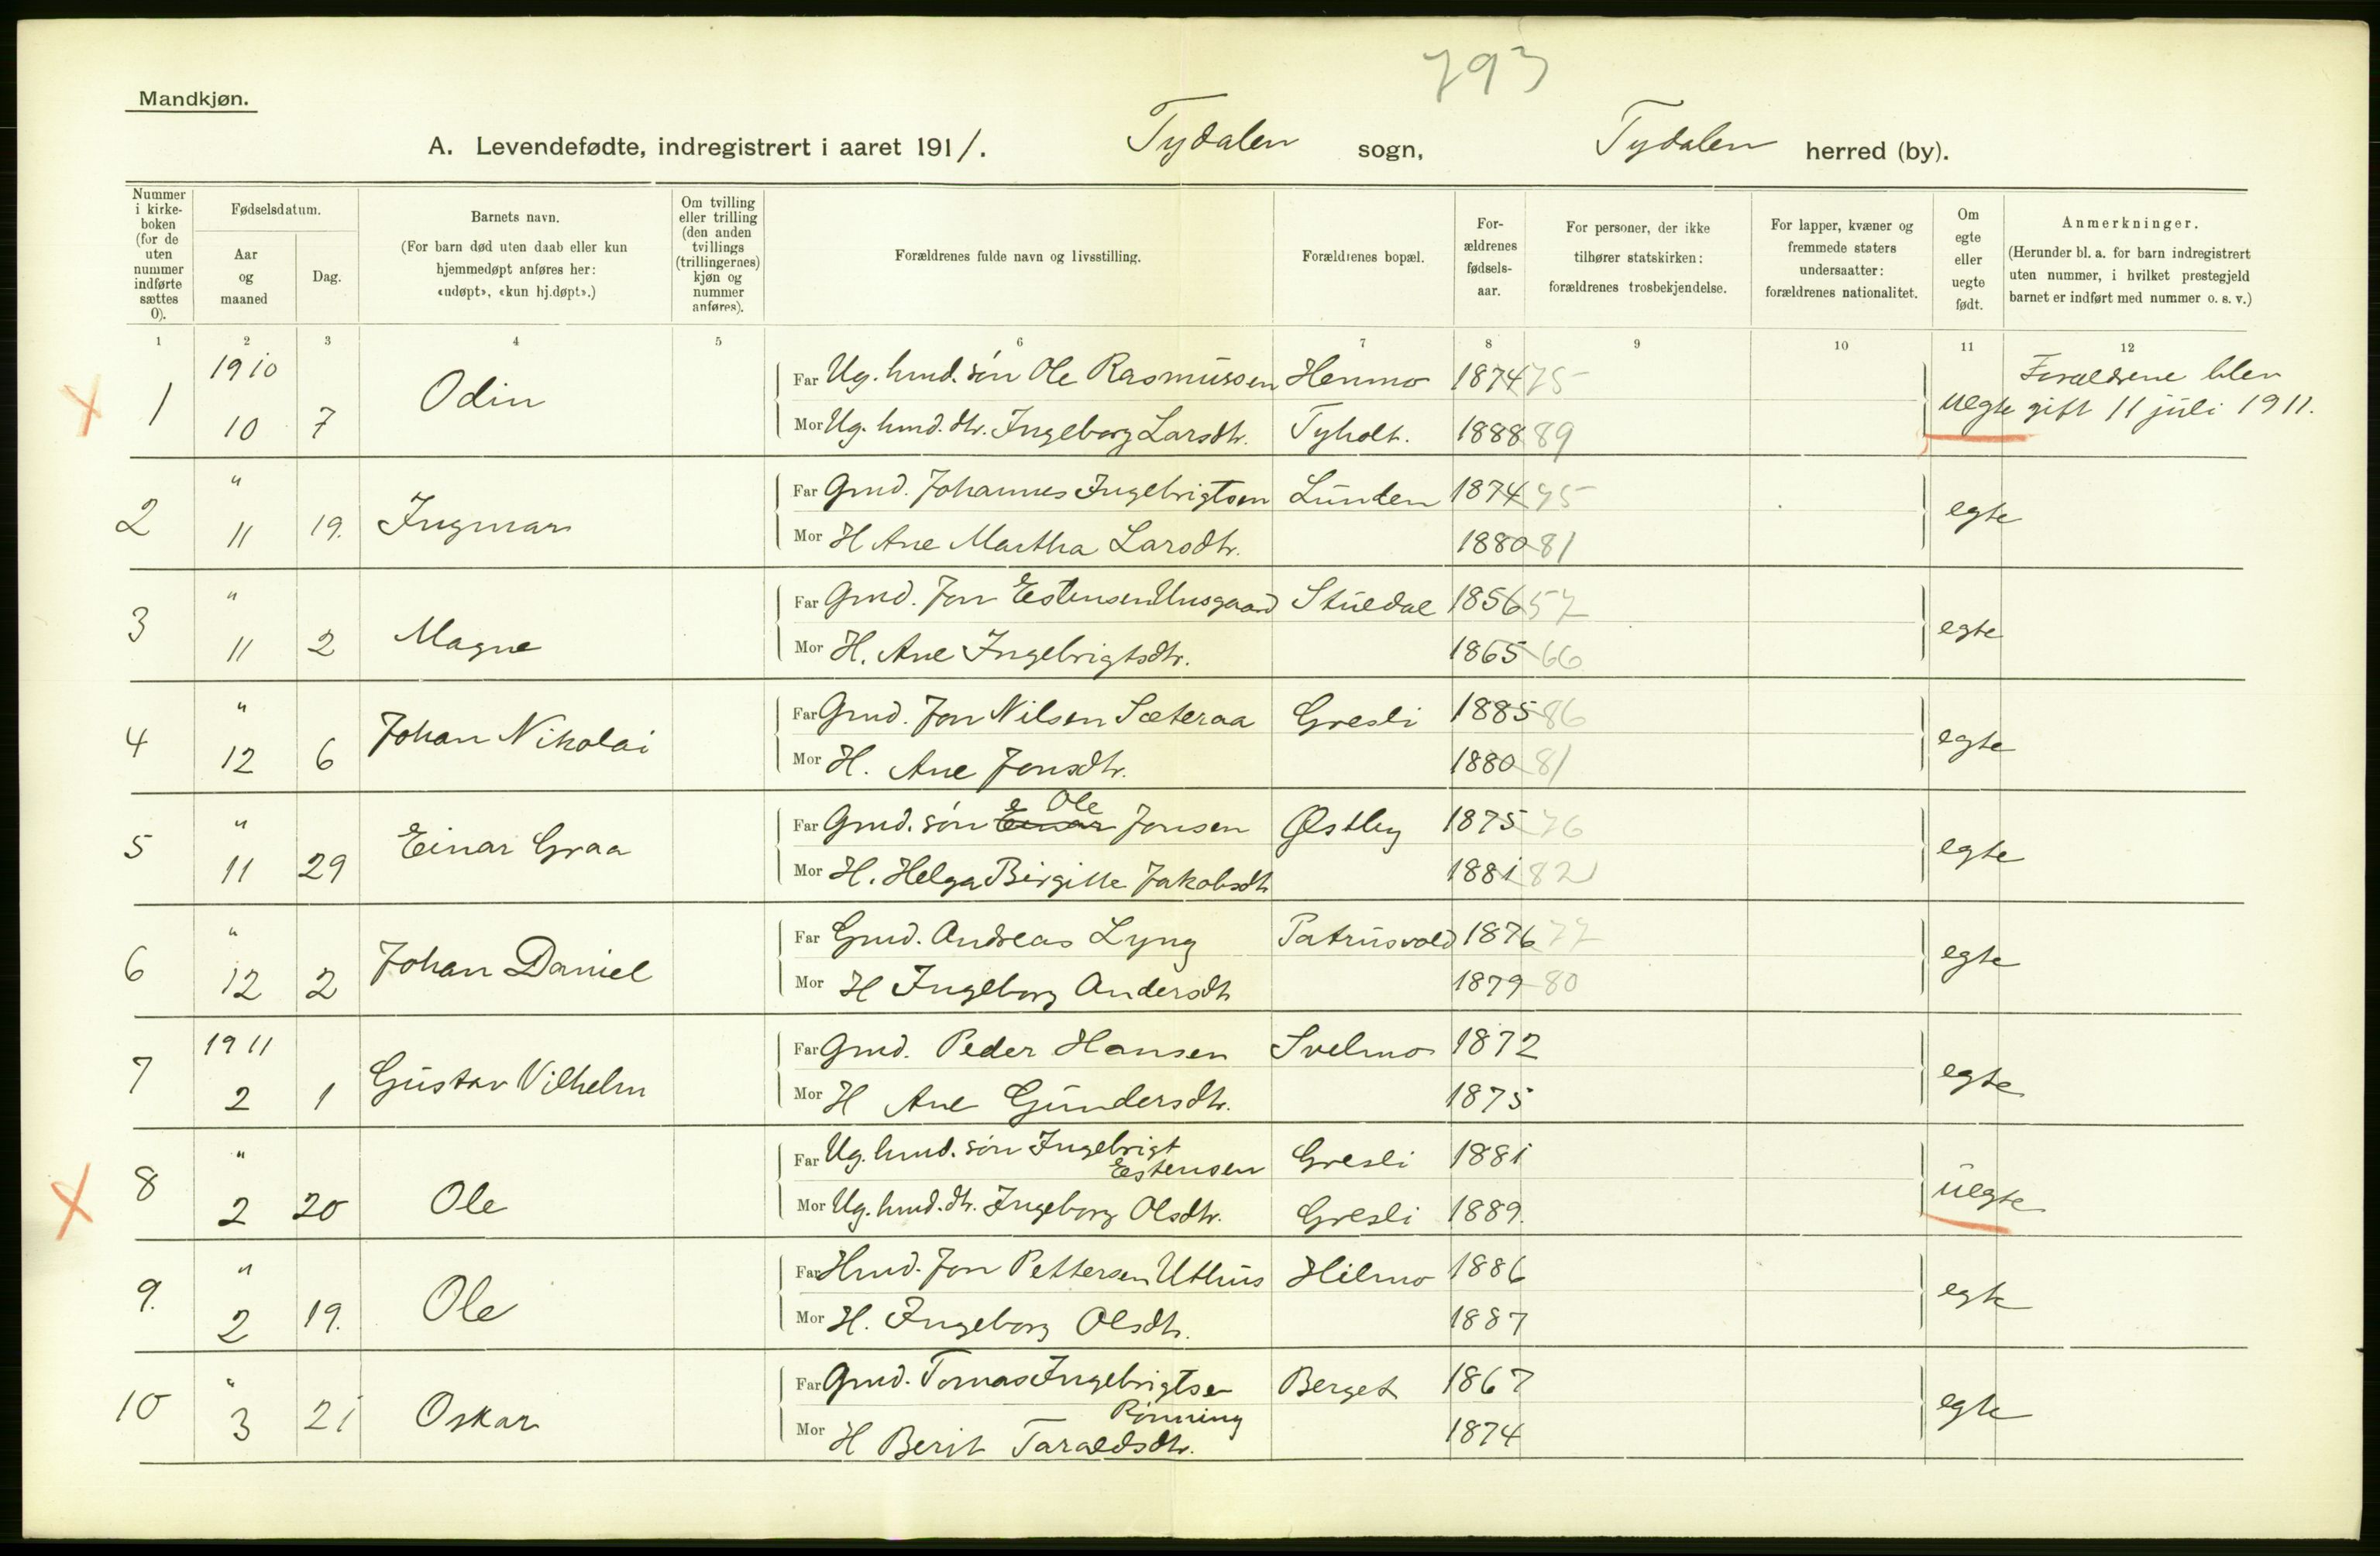 793
Mandkjøn.
A. Levendefødte, indregistrert i aaret 1911. Tydalen sogn, Tydalen herred (by).
Nummer i kirke-boken (for de uten nummer indførte sættes 0).
Fødselsdatum.
Aar og maaned
Dag.
Barnets navn.
(For barn død uten daab eller kun hjemmedøpt anføres her: «udøpt», «kun hj.døpt».)
Om tvilling eller trilling (den anden tvillings (trillingernes) kjøn og nummer anføres).
Forældrenes fulde navn og livsstilling.
Forældrenes bopæl.
For-ældrenes fødsels-aar.
For personer, der ikke tilhører statskirken: forældrenes trosbekjendelse.
For lapper, kvæner og fremmede staters undersaatter: forældrenes nationalitet.
Om egte eller uegte født.
Anmerkninger.
(Herunder bl. a. for barn indregistrert uten nummer, i hvilket prestegjeld barnet er indført med nummer o. s. v.)
1 2 3 4 5 6 7 8 9 10 11 12
1 1910 10 7 Odin
Far Ug. hmd. søn Ole Rasmussen Henmo 1874 75
Mor Ug. hmd. dtr. Ingeborg Larsdtr. Tyholt. 1888 89
uegte Forældrene blev gift 11 juli 1911.
2 " 11 19. Ingmar
Far Gmd. Johannes Ingebrigtsen Lunden 1874 75
Mor H Ane Martha Larsdtr. 1880 81
egte
3 " 11 2 Magne
Far Gmd. Jon Estensen Unsgaard Stuedal 1856 57
Mor H. Ane Ingebrigtsdtr. 1865 66
egte
4 " 12 6 Johan Nikolai
Far Gmd. Jon Nilsen Sæteraa Gresli 1885 86
Mor H. Ane Jonsdtr. 1880 81
egte
5 " 11 29 Einar Graa
Far Gmd. søn Einar Ole Jonsen Østby 1875 76
Mor H. Helga Birgitte Jakobsdtr 1881 82
egte
6 " 12 2 Johan Daniel
Far Gmd. Andreas Lyng Patrusvold 1876 77
Mor H Ingeborg Andersdtr 1879 80
egte
7 1911 2 1 Gustav Vilhelm
Far Gmd. Peder Hansen Svelmo 1872
Mor H Ane Gundersdtr. 1875
egte
8 " 2 20 Ole
Far Ug. hmd. søn Ingebrigt Estensen Gresli 1881
Mor Ug. hmd. dtr. Ingeborg Olsdtr. Gresli 1889.
uegte
9. " 2 19. Ole
Far Hmd. Jon Pettersen Uthus Hilmo 1886
Mor H. Ingeborg Olsdtr. 1887
egte
10 " 3 21 Oskar
Far Gmd. Tomas Ingebrigtsen Rønning Berget 1867
Mor H Berit Taraldsdtr. 1874
egte